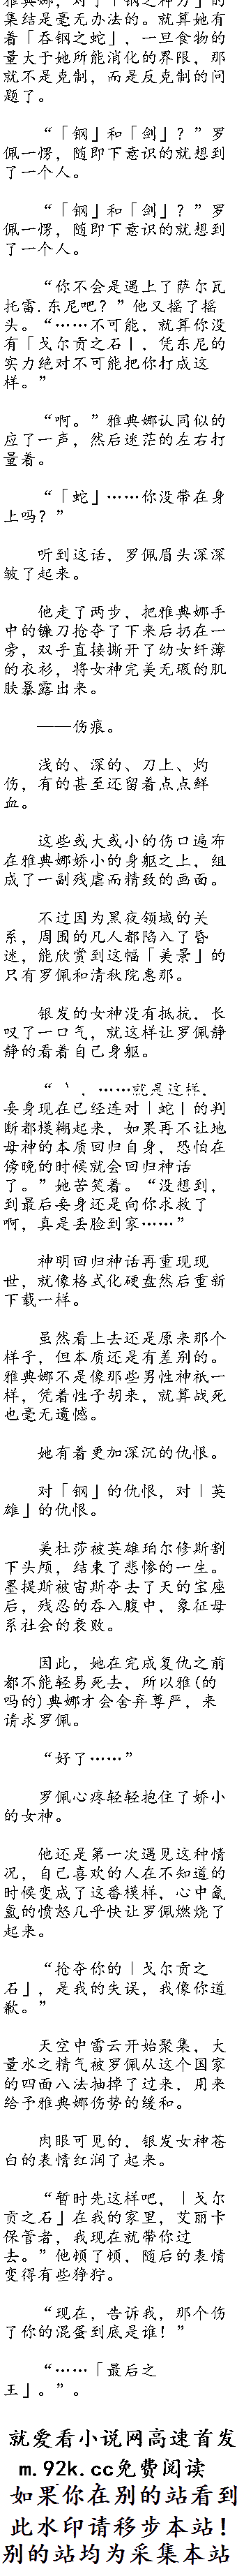 雅典娜，对于「钢之神力」的
集结是毫无办法的。就算她有
着「吞钢之蛇」，一旦食物的
量大于她所能消化的界限，那
就不是克制，而是反克制的问
题了。
“「钢」和「剑」？”罗
佩一愣，随即下意识的就想到
了一个人。
“「钢」和「剑」？”罗
佩一愣，随即下意识的就想到
了一个人。
“你不会是遇上了萨尔瓦
托雷.东尼吧？”他又摇了摇
头。“……不可能，就算你没
有「戈尔贡之石」，凭东尼的
实力绝对不可能把你打成这
样。”
“啊。”雅典娜认同似的
应了一声，然后迷茫的左右打
量着。
“「蛇」……你没带在身
上吗？”
听到这话，罗佩眉头深深
皱了起来。
他走了两步，把雅典娜手
中的镰刀抢夺了下来后扔在一
旁，双手直接撕开了幼女纤薄
的衣衫，将女神完美无瑕的肌
肤暴露出来。
——伤痕。
浅的、深的、刀上、灼
伤，有的甚至还留着点点鲜
血。
这些或大或小的伤口遍布
在雅典娜娇小的身躯之上，组
成了一副残虐而精致的画面。
不过因为黑夜领域的关
系，周围的凡人都陷入了昏
迷，能欣赏到这幅「美景」的
只有罗佩和清秋院惠那。
银发的女神没有抵抗，长
叹了一口气，就这样让罗佩静
静的看着自己身躯。
，……就是这样，
妾身现在已经连对「蛇」的判
断都模糊起来，如果再不让地
母神的本质回归自身，恐怕在
傍晚的时候就会回归神话
了。”她苦笑着。“没想到，
到最后妾身还是向你求救了
啊，真是丢脸到家……”
神明回归神话再重现现
世，就像格式化硬盘然后重新
下载一样。
虽然看上去还是原来那个
样子，但本质还是有差别的。
雅典娜不是像那些男性神祇一
样，凭着性子胡来，就算战死
也毫无遗憾。
她有着更加深沉的仇恨。
对「钢」的仇恨，对「英
雄」的仇恨。
美杜莎被英雄珀尔修斯割
下头颅，结束了悲惨的一生。
墨提斯被宙斯夺去了天的宝座
后，残忍的吞入腹中，象征母
系社会的衰败。
因此，她在完成复仇之前
都不能轻易死去，所以雅(的
吗的)典娜才会舍弃尊严，来
请求罗佩。
“好了……”
罗佩心疼轻轻抱住了娇小
的女神。
他还是第一次遇见这种情
况，自己喜欢的人在不知道的
时候变成了这番模样，心中氤
氲的愤怒几乎快让罗佩燃烧了
起来。
“抢夺你的「戈尔贡之
石」，是我的失误，我像你道
歉。”
天空中雷云开始聚集，大
量水之精气被罗佩从这个国家
的四面八法抽掉了过来，用来
给予雅典娜伤势的缓和。
肉眼可见的，银发女神苍
白的表情红润了起来。
“暂时先这样吧，「戈尔
贡之石」在我的家里，艾丽卡
保管者，我现在就带你过
去。”他顿了顿，随后的表情
变得有些狰狞。
“现在，告诉我，那个伤
了你的混蛋到底是谁！”
“……「最后之
王」。”。
就爱看小说网高速首发
m.92k.cc免费阅读
如果你在别的站看到
此水印请移步本站！
别的站均为采集本站